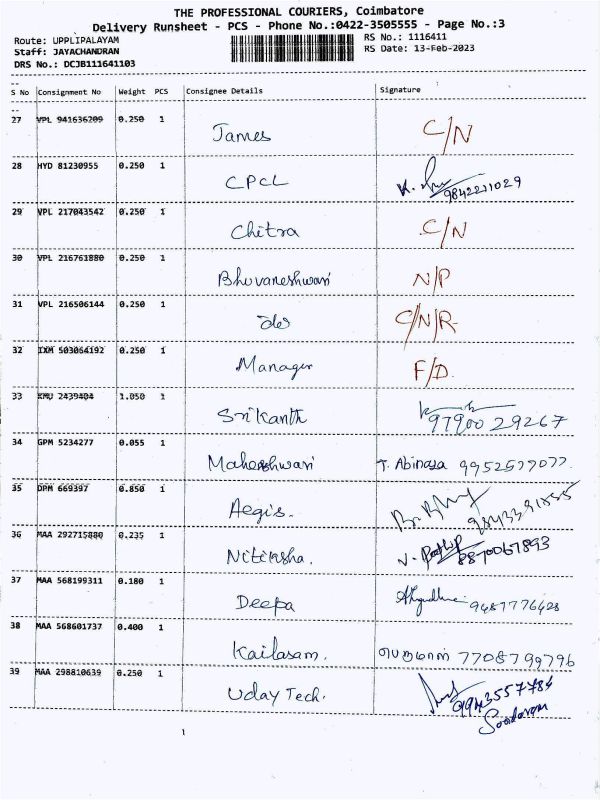 THE PROFESSIONAL COURIERS, Coimbatore
Delivery Runsheet - PCS - Phone No.:0422-3505555 - Page No.:3
Route: UPPLIPALAYAM RS No.: 1116411
Staff: JAYACHANDRAN RS Date: 13-Feb-2023
DRS No.: DCJB111641103
S No Consignment No Weight PCS Consignee Details Signature
27 VPL 941636209 0.250 1 James C/N
28 HYD 81230955 0.250 1 CPCL K. 9842221029
29 VPL 217043542 0.250 1 Chitra C/N
30 VPL 216761880 0.250 1 Bhuvaneshwari N/P
31 VPL 216506144 0.250 1 C/N/R
32 IXM 503064192 0.250 1 Manager F/D
33 KMU 2439404 1.050 1 Srikanth 97900 29267
34 GPM 5234277 0.055 1 Maheshwari T. Abinaya 9952577077
35 DPM 669397 0.850 1 Aegis.
36 MAA 292715880 0.235 1 Nitiksha. 8870067893
37 MAA 568199311 0.180 1 Deepa 9487776428
38 MAA 568601737 0.400 1 Kailasam. பெருமாள் 7708799796
39 MAA 298810639 0.250 1 Uday Tech. 9943557784
Sundaram
1